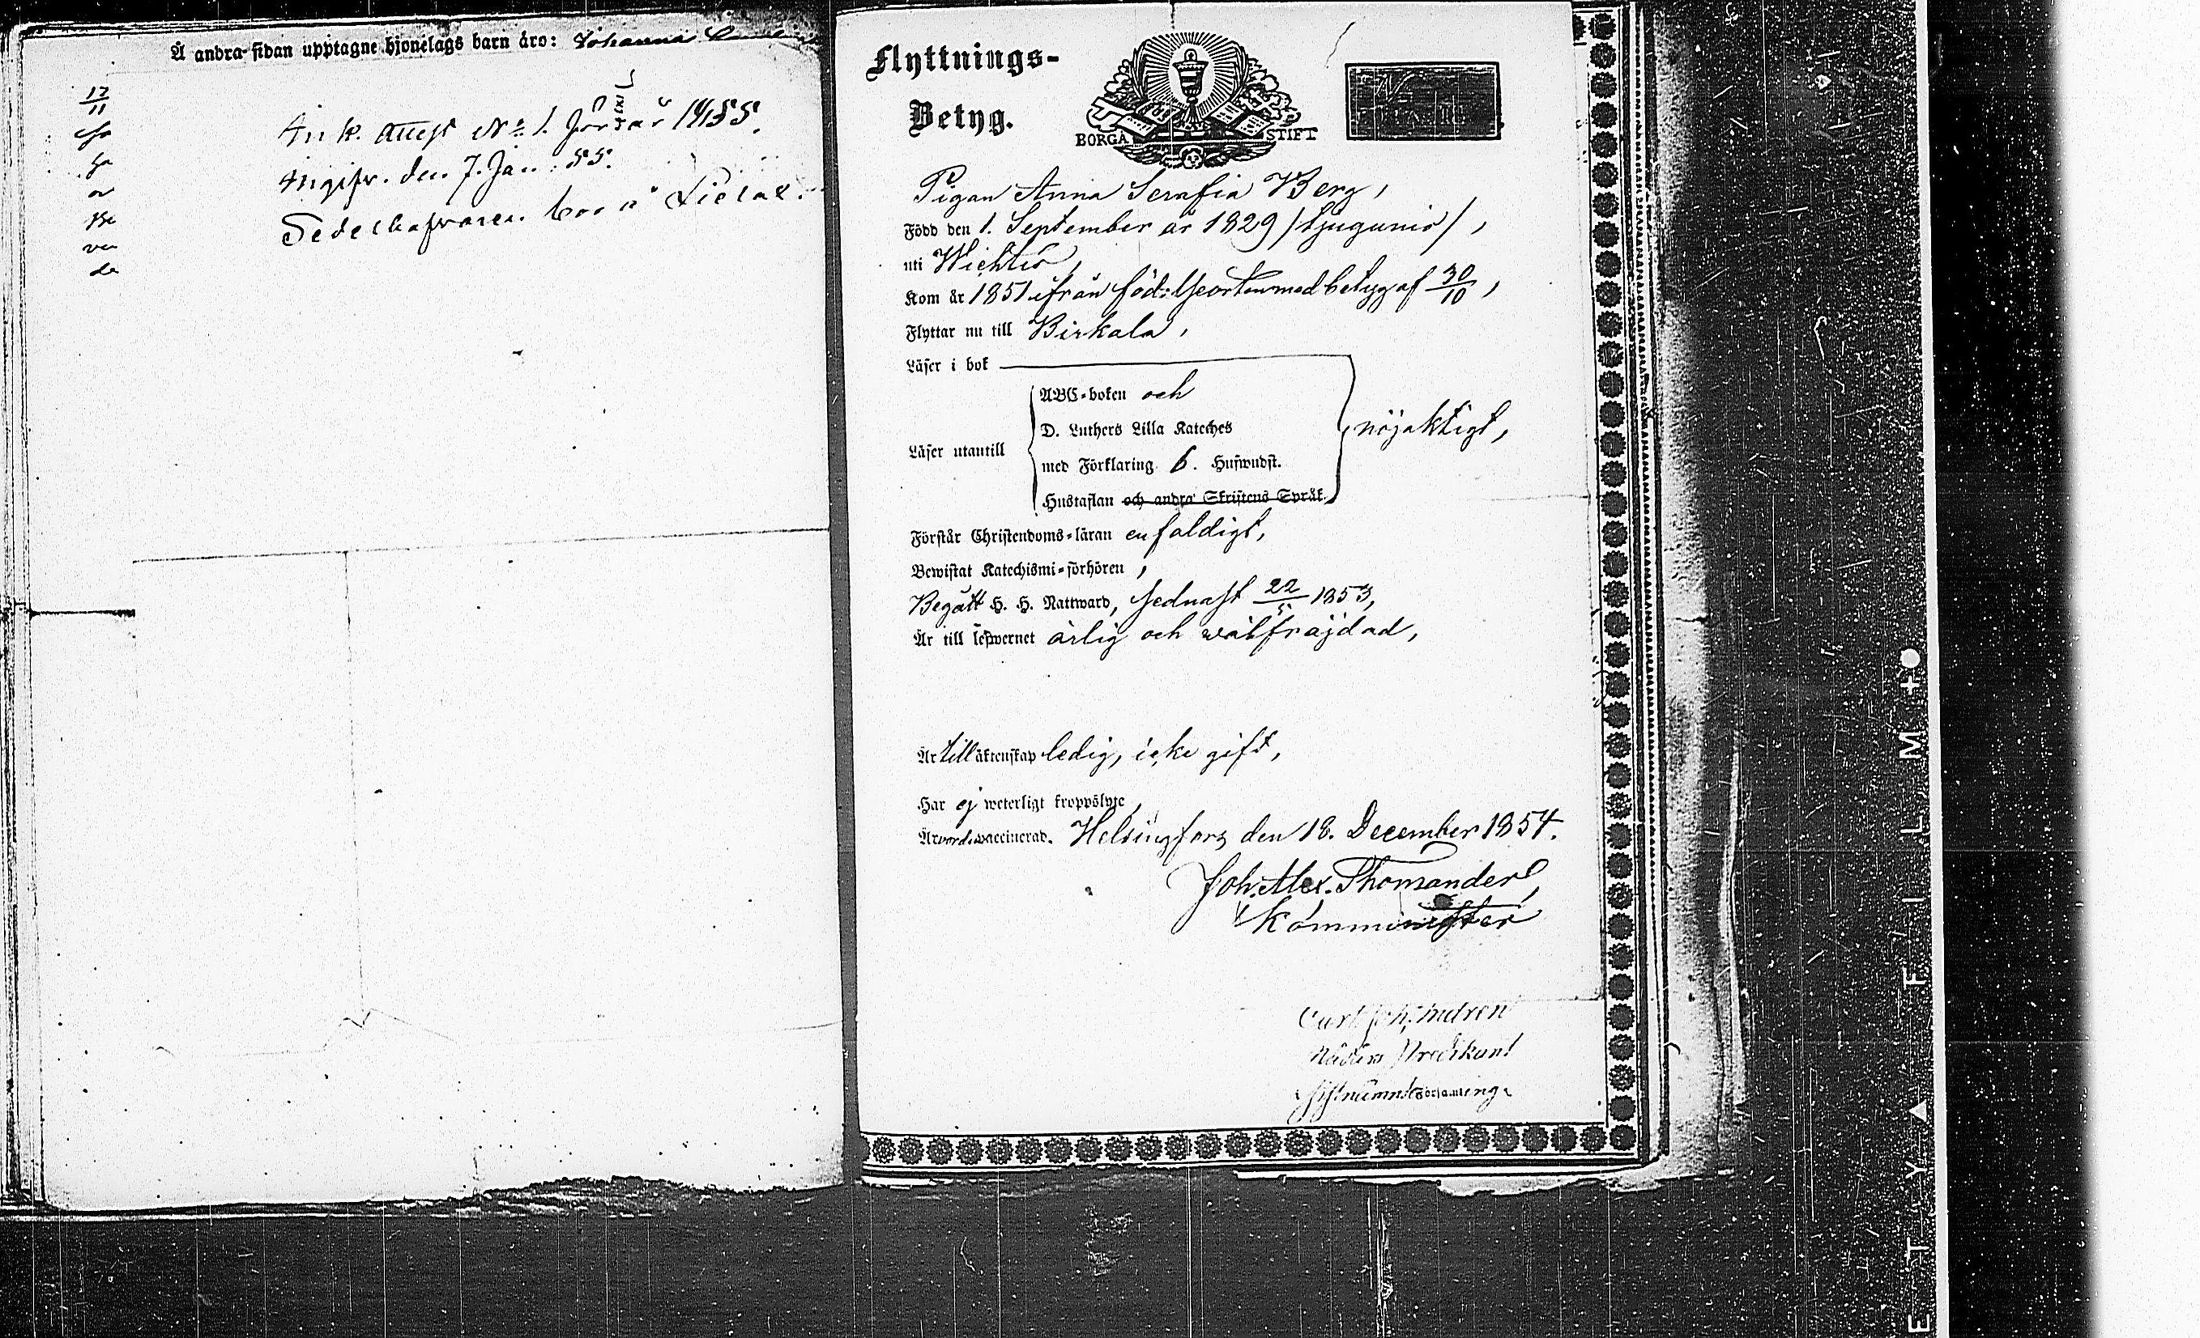 Å andra sidan upptagne hjonelags barn äro: Johanna
12/11
Ink. attest № 1. för år 1855.
Angifv. den 7. Jan. 55.
Flyttnings-
Betyg.
BORGÅ STIFT
Pigan Anna Serafia Berg,
Född den 1. September år 1829 /tjugunio/,
uti Wichtis,
Kom år 1851 ifrån födelseorten med betyg af 30/10,
Flyttar nu till Birkala,
Läser i bok
ABC-boken och
D. Luthers Lilla Kateches
Läser utantill
nöjaktigt,
med Förklaring 6. Hufwudst.
Hustaflan och andra Skriftens Språk
Förstår Christendoms-läran enfaldigt,
Bewistat Katechismi-förhören,
Begått H. H. Nattward, sednast 22/5 1853,
Är till lefwernet ärlig och wälfräjdad,
Är till äktenskap ledig, icke gift,
Har ej weterligt kroppslyte,
Är vord. vaccinerad. Helsingfors den 18. December 1854.
Joh. Alex. Thomander,
Komminister
Predikant
Församling
FILM
ETY